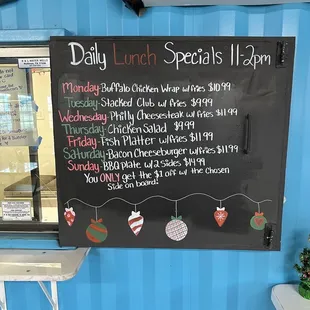 Daily Lunch Specials 11-2pm
Monday-Buffalo Chicken Wrap w/fries $10.99
Tuesday-Stacked Club w/fries $9.99
Wednesday-Philly Cheesesteak w/fries $11.99
Thursday-Chicken Salad $9.99
Friday-Fish Platter w/fries $11.99
Saturday-Bacon Cheeseburger w/fries $11.99
Sunday-BBQ plate w/2 sides $14.99
You ONLY get the $1 off w/ the chosen
Side on board!